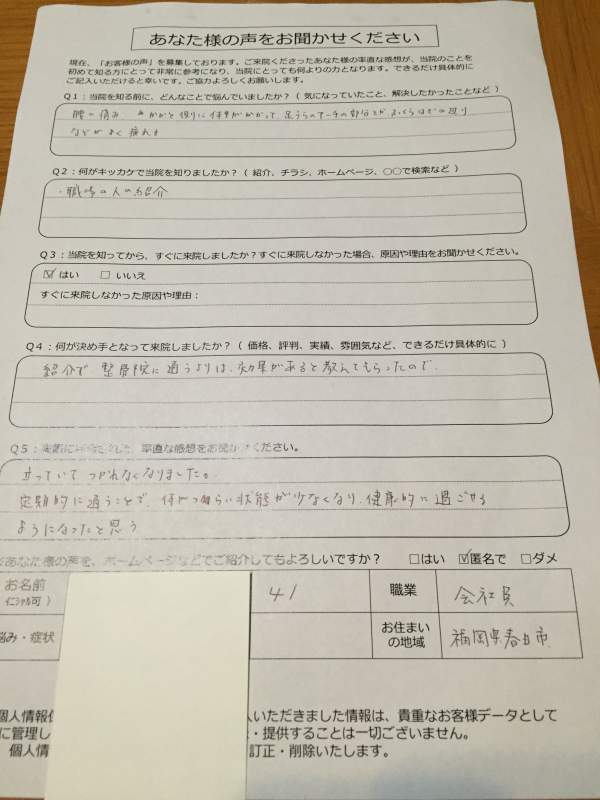 あなた様の声をお聞かせください
現在、「お客様の声」を募集しております。ご来院くださったあなた様の率直な感想が、当院のことを
初めて知る方にとって非常に参考になり、当院にとっても何よりの力となります。できるだけ具体的に
ご記入いただけると幸いです。ご協力よろしくお願いします。
Q1：当院を知る前に、どんなことで悩んでいましたか？（ 気になっていたこと、解決したかったことなど ）
腰の痛み かかと側に体重がかかって、足うらのアーチの部分とか、ふくらはぎの辺り
などがよく疲れる
Q2：何がキッカケで当院を知りましたか？（ 紹介、チラシ、ホームページ、〇〇で検索など ）
・職場の人の紹介
Q3：当院を知ってから、すぐに来院しましたか？すぐに来院しなかった場合、原因や理由をお聞かせください。
☑ はい □ いいえ
すぐに来院しなかった原因や理由：
Q4：何が決め手となって来院しましたか？（ 価格、評判、実績、雰囲気など、できるだけ具体的に ）
紹介で 整骨院に通うよりは、効果があると教えてもらったので。
Q5：実際に 率直な感想をお聞かせください。
立っていて つかれなくなりました。
定期的に通うことで、体がつらい状態が少なくなり、健康的に過ごせる
ようになったと思う
あなた様の声を、ホームページなどでご紹介してもよろしいですか？ □はい ☑匿名で □ダメ
お名前
イニシャル可 ）
41
職業
会社員
悩み・症状
お住まい
の地域
福岡県春日市
個人情報
入いただきました情報は、貴重なお客様データとして
に管理し
・提供することは一切ございません。
個人情
訂正・削除いたします。